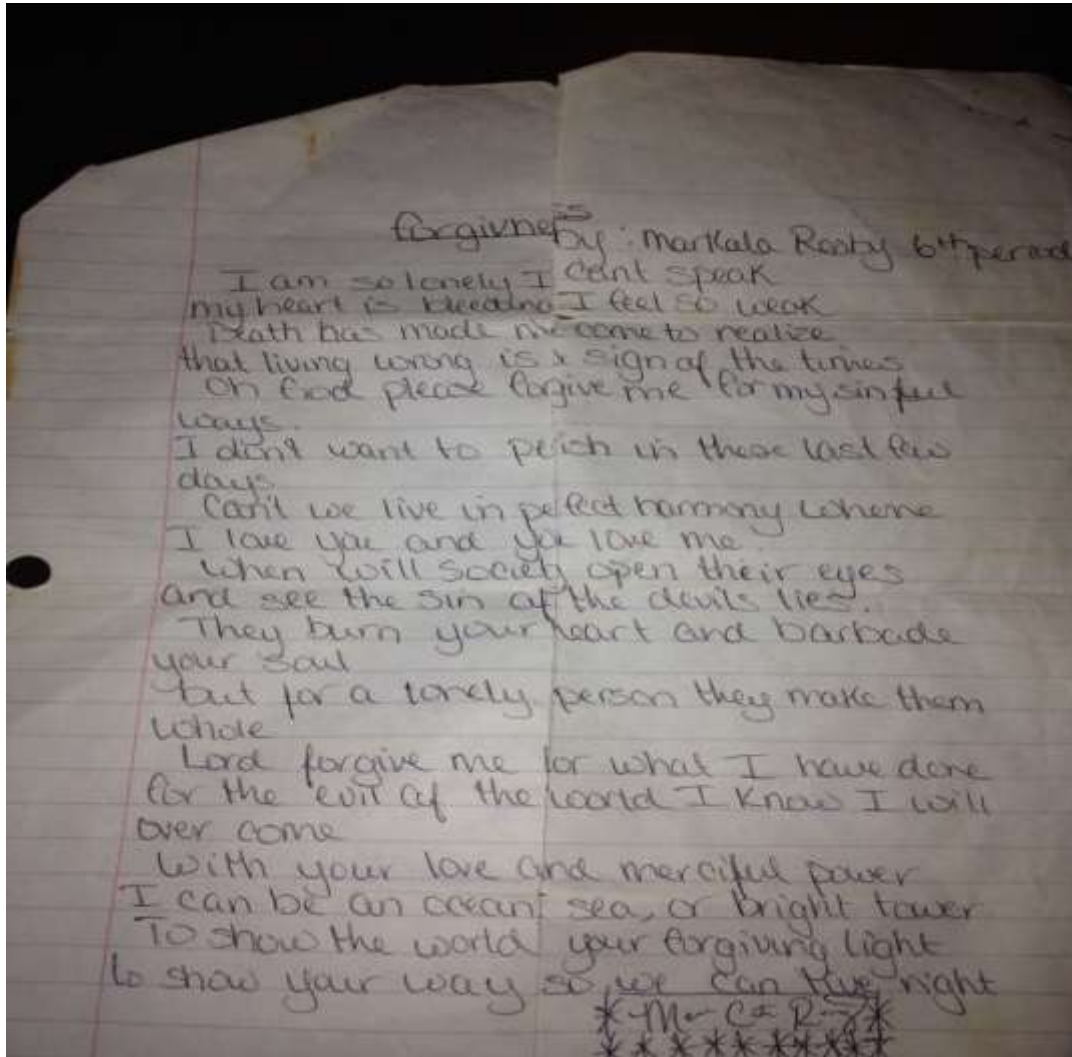 forgivness
by: Markala 6th period
I am so lonely I cant speak
my heart is bleeding I feel so weak
Death has made me come to realize
that living wrong is a sign of the times
Oh God please forgive me for my sinful
ways.
I don't want to perish in these last few
days
Can't we live in perfect harmony where
I love you and you love me.
When will society open their eyes
and see the sin of the devils lies.
They burn your heart and barbade
your soul
but for a lonely person they make them
whole
Lord forgive me for what I have done
for the evil of the world I know I will
over come
With your love and merciful power
I can be an ocean, sea, or bright tower
To show the world your forgiving light
to show your way so we can live right
M C R